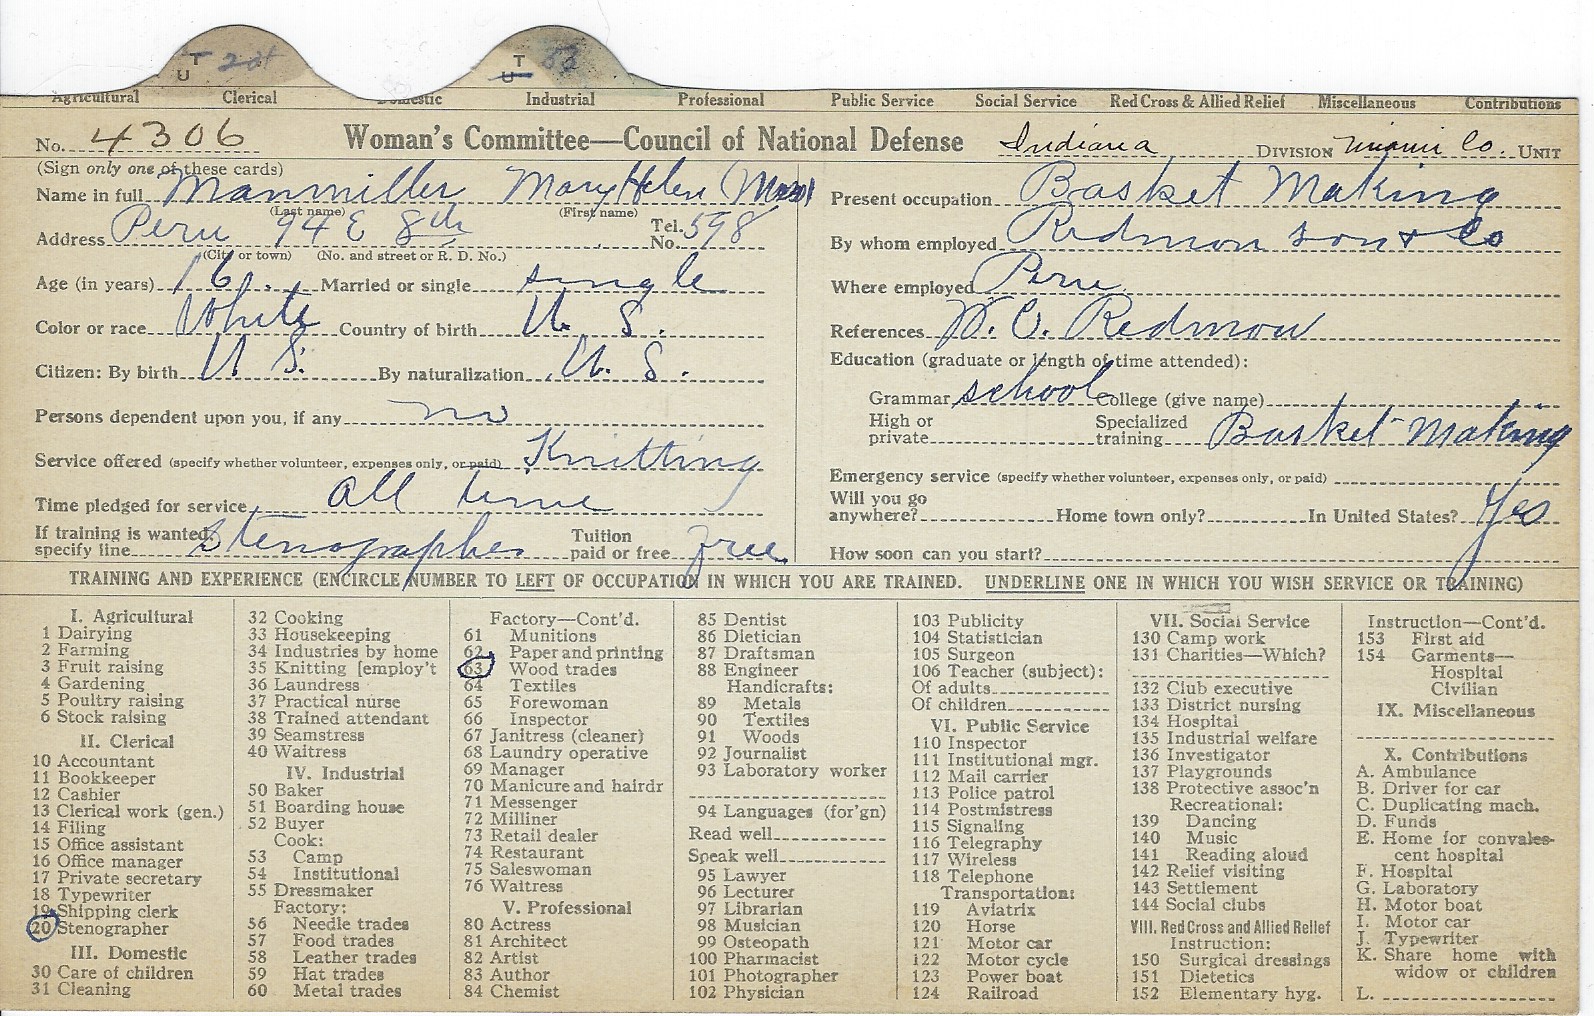 T U 20
T U 63
Agricultural Clerical Domestic Industrial Professional Public Service Social Service Red Cross & Allied Relief Miscellaneous Contributions
No. 4306 Woman's Committee—Council of National Defense Indiana DIVISION Miami Co. UNIT
(Sign only one of these cards)
Name in full Manmiller Mary Helen (Miss)
(Last name) (First name)
Address Peru 94 E 8th Tel. No. 598
(City or town) (No. and street or R. D. No.)
Age (in years) 16. Married or single single
Color or race White Country of birth U. S.
Citizen: By birth U S. By naturalization U. S.
Persons dependent upon you, if any no
Service offered (specify whether volunteer, expenses only, or paid) Knitting
Time pledged for service all time
If training is wanted, specify line Stenographer Tuition paid or free free
Present occupation Basket Making
By whom employed Redmon son & Co
Where employed Peru
References W. C. Redmon
Education (graduate or length of time attended):
Grammar school College (give name)
High or private Specialized training Basket-Making
Emergency service (specify whether volunteer, expenses only, or paid)
Will you go anywhere? Home town only? In United States? Yes
How soon can you start?
TRAINING AND EXPERIENCE (ENCIRCLE NUMBER TO LEFT OF OCCUPATION IN WHICH YOU ARE TRAINED. UNDERLINE ONE IN WHICH YOU WISH SERVICE OR TRAINING)
I. Agricultural
1 Dairying
2 Farming
3 Fruit raising
4 Gardening
5 Poultry raising
6 Stock raising
II. Clerical
10 Accountant
11 Bookkeeper
12 Cashier
13 Clerical work (gen.)
14 Filing
15 Office assistant
16 Office manager
17 Private secretary
18 Typewriter
19 Shipping clerk
20 Stenographer
III. Domestic
30 Care of children
31 Cleaning
32 Cooking
33 Housekeeping
34 Industries by home
35 Knitting [employ't
36 Laundress
37 Practical nurse
38 Trained attendant
39 Seamstress
40 Waitress
IV. Industrial
50 Baker
51 Boarding house
52 Buyer
Cook:
53 Camp
54 Institutional
55 Dressmaker
Factory:
56 Needle trades
57 Food trades
58 Leather trades
59 Hat trades
60 Metal trades
Factory—Cont'd.
61 Munitions
62 Paper and printing
63 Wood trades
64 Textiles
65 Forewoman
66 Inspector
67 Janitress (cleaner)
68 Laundry operative
69 Manager
70 Manicure and hairdr
71 Messenger
72 Milliner
73 Retail dealer
74 Restaurant
75 Saleswoman
76 Waitress
V. Professional
80 Actress
81 Architect
82 Artist
83 Author
84 Chemist
85 Dentist
86 Dietician
87 Draftsman
88 Engineer
Handicrafts:
89 Metals
90 Textiles
91 Woods
92 Journalist
93 Laboratory worker
94 Languages (for'gn)
Read well
Speak well
95 Lawyer
96 Lecturer
97 Librarian
98 Musician
99 Osteopath
100 Pharmacist
101 Photographer
102 Physician
103 Publicity
104 Statistician
105 Surgeon
106 Teacher (subject):
Of adults
Of children
VI. Public Service
110 Inspector
111 Institutional mgr.
112 Mail carrier
113 Police patrol
114 Postmistress
115 Signaling
116 Telegraphy
117 Wireless
118 Telephone
Transportation:
119 Aviatrix
120 Horse
121 Motor car
122 Motor cycle
123 Power boat
124 Railroad
VII. Social Service
130 Camp work
131 Charities—Which?
132 Club executive
133 District nursing
134 Hospital
135 Industrial welfare
136 Investigator
137 Playgrounds
138 Protective assoc'n
Recreational:
139 Dancing
140 Music
141 Reading aloud
142 Relief visiting
143 Settlement
144 Social clubs
VIII. Red Cross and Allied Relief
Instruction:
150 Surgical dressings
151 Dietetics
152 Elementary hyg.
Instruction—Cont'd.
153 First aid
154 Garments—
Hospital
Civilian
IX. Miscellaneous
X. Contributions
A. Ambulance
B. Driver for car
C. Duplicating mach.
D. Funds
E. Home for convales-
cent hospital
F. Hospital
G. Laboratory
H. Motor boat
I. Motor car
J. Typewriter
K. Share home with
widow or children
L.